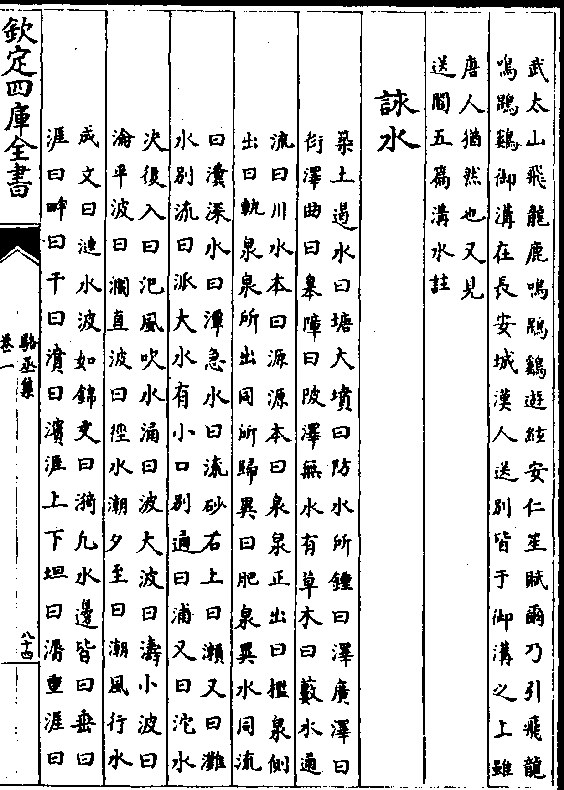 武太山飛龍鹿鳴鵾鷄遊絃安仁笙賦爾乃引飛龍
鳴鵾鷄御溝在長安城漢人送別皆于御溝之上雖
唐人猶然也又見
送閻五篇溝水註
詠水
築土遏水曰塘大墳曰防水所鍾曰澤廣澤曰
衍澤曲曰臯障曰陂澤無水有草木曰藪水通
流曰川水本曰源源本曰泉泉正出曰檻泉側
出曰軌泉泉所出同所歸異曰肥泉異水同流
曰瀵深水曰潭急水曰流砂石上曰瀨又曰灘
水別流曰派大水有小口別通曰浦又曰沱水
決復入曰汜風吹水涌曰波大波曰濤小波曰
淪平波曰瀾直波曰徑水潮夕至曰潮風行水
成文曰漣水波如錦文曰漪凡水邊皆曰垂曰
涯曰畔曰干曰濆曰濱涯上下坦曰漘重涯曰
欽定四庫全書
駱丞集
卷一
八十四